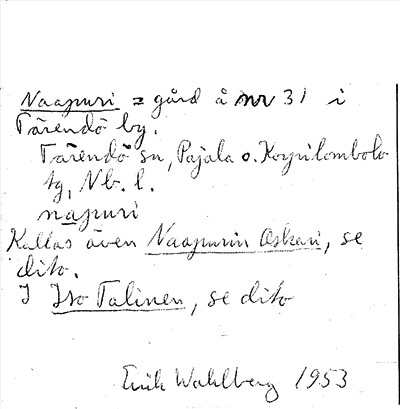 Naapuri = gård å nr 31 i
Tärendö by.
Tärendö sn, Pajala o. Korpilombolo
tg, Nb. l.
napuri
Kallas även Naapurin Oskari, se
dito.
I Iso Talinen, se dito
Erik Wahlberg 1953